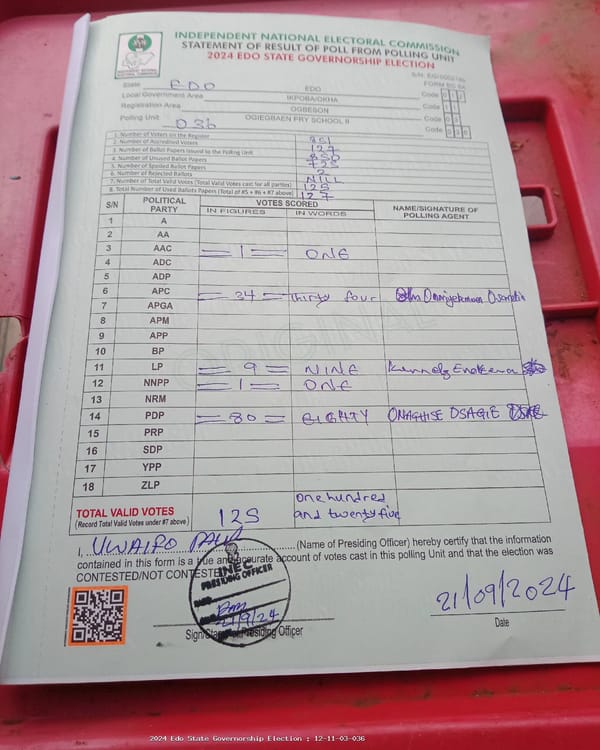 INDEPENDENT NATIONAL ELECTORAL COMMISSION
STATEMENT OF RESULT OF POLL FROM POLLING UNIT
2024 EDO STATE GOVERNORSHIP ELECTION
FORM EC 8A
State EDO EDO Code 1 2
Local Government Area IKPOBA/OKHA Code 1 1
Registration Area OGBESON Code 0 3
Polling Unit 036 OGIEGBAEN PRY SCHOOL II Code 0 3 6
1. Number of Voters on the Register
2. Number of Accredited Voters 127
3. Number of Ballot Papers Issued to the Polling Unit
4. Number of Unused Ballot Papers
5. Number of Spoiled Ballot Papers 2
6. Number of Rejected Ballots NILL
7. Number of Total Valid Votes (Total Valid Votes cast for all parties) 125
8. Total Number of Used Ballots Papers (Total of #5 + #6 + #7 above) 127
S/N POLITICAL PARTY VOTES SCORED NAME/SIGNATURE OF POLLING AGENT
IN FIGURES IN WORDS
1 A
2 AA
3 AAC 1 ONE
4 ADC
5 ADP
6 APC 34 thirty four
7 APGA
8 APM
9 APP
10 BP
11 LP 9 NINE
12 NNPP 1 ONE
13 NRM
14 PDP 80 EIGHTY ONAGHISE OSAGIE
15 PRP
16 SDP
17 YPP
18 ZLP
TOTAL VALID VOTES 125 one hundred and twenty five
(Record Total Valid Votes under #7 above)
I, UWAIFO PAUL (Name of Presiding Officer) hereby certify that the information
contained in this form is a true and accurate account of votes cast in this polling Unit and that the election was
CONTESTED/NOT CONTESTED
INEC
PRESIDING OFFICER
21/9/24
Sign/Stamp of Presiding Officer
21/09/2024
Date
2024 Edo State Governorship Election : 12-11-03-036